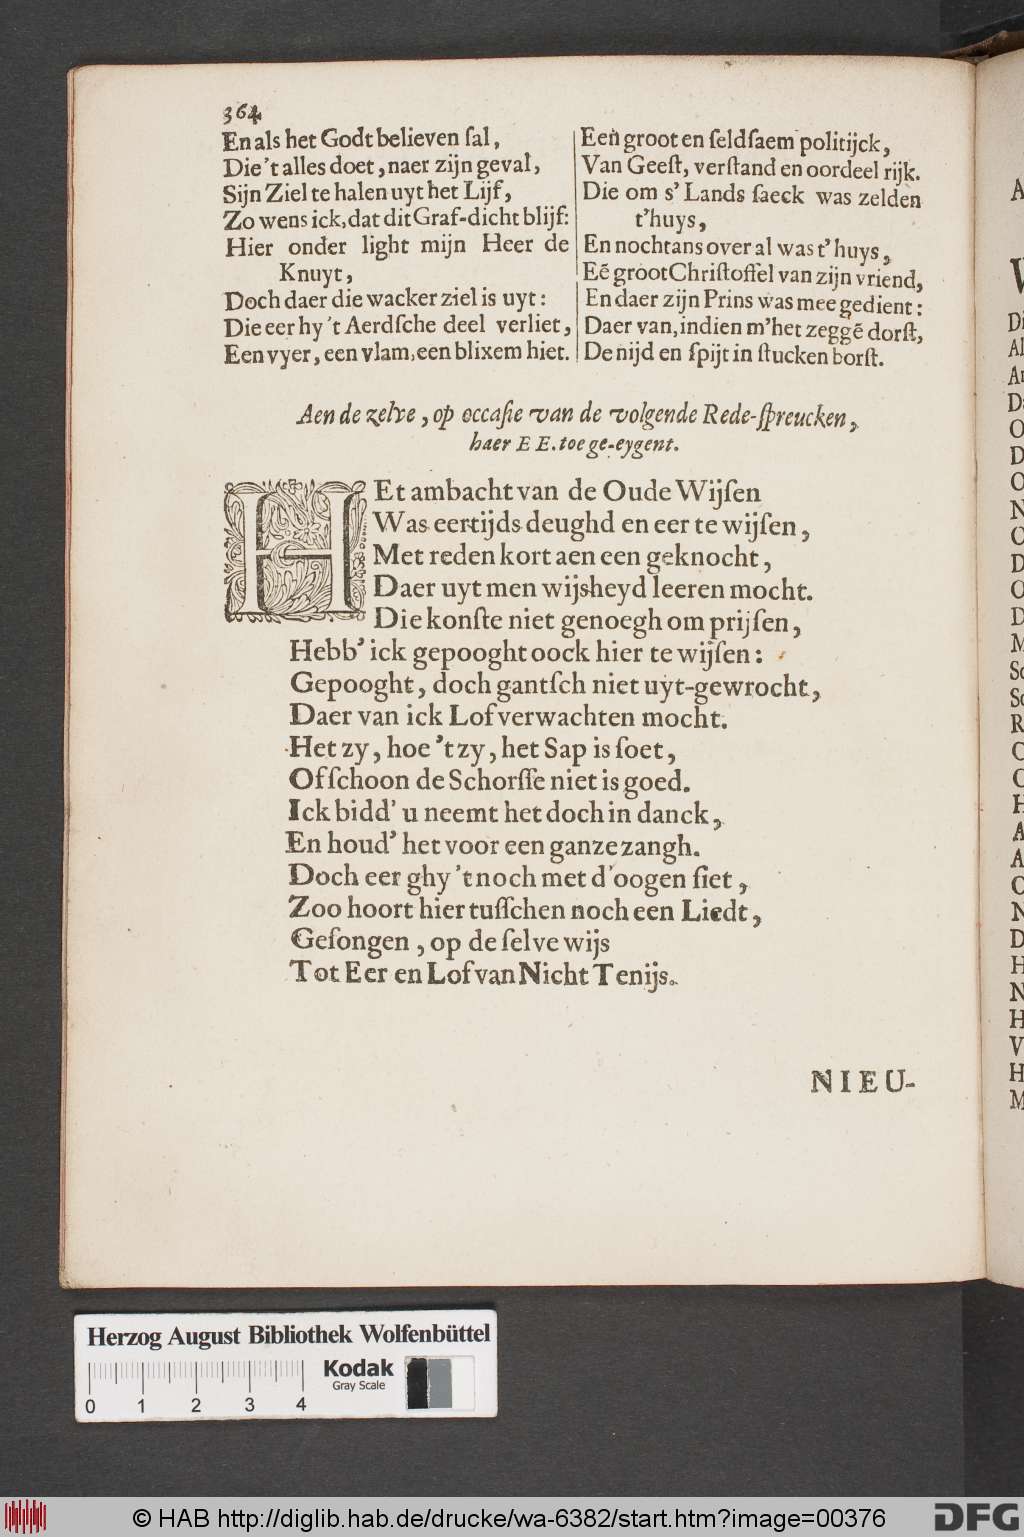 364
En als het Godt believen ſal,
Die 't alles doet, naer zijn geval,
Sijn Ziel te halen uyt het Lijf,
Zo wens ick, dat dit Graf-dicht blijf:
Hier onder light mijn Heer de
Knuyt,
Doch daer die wacker ziel is uyt:
Die eer hy 't Aerdſche deel verliet,
Een vyer, een vlam, een blixem hiet.
Een groot en ſeldſaem politijck,
Van Geeſt, verſtand en oordeel rijk.
Die om s' Lands ſaeck was zelden
t'huys,
En nochtans over al was t' huys,
Eē groot Chriſtoffel van zijn vriend,
En daer zijn Prins was mee gedient:
Daer van, indien m'het zeggē dorſt,
De nijd en ſpijt in ſtucken borſt.
Aen de zelve, op occaſie van de volgende Rede-ſpreucken,
haer E E. toe ge-eygent.
HEt ambacht van de Oude Wijſen
Was eertijds deughd en eer te wijſen,
Met reden kort aen een geknocht,
Daer uyt men wijsheyd leeren mocht.
Die konſte niet genoegh om prijſen,
Hebb' ick gepooght oock hier te wijſen:
Gepooght, doch gantſch niet uyt-gewrocht,
Daer van ick Lof verwachten mocht.
Het zy, hoe 't zy, het Sap is ſoet,
Of ſchoon de Schorſſe niet is goed.
Ick bidd' u neemt het doch in danck,
En houd' het voor een ganze zangh.
Doch eer ghy 't noch met d'oogen ſiet,
Zoo hoort hier tuſſchen noch een Liedt,
Geſongen, op de ſelve wijs
Tot Eer en Lof van Nicht Tenijs.
NIEU-
Herzog August Bibliothek Wolfenbüttel
Kodak
Gray Scale
0 1 2 3 4
© HAB http://diglib.hab.de/drucke/wa-6382/start.htm?image=00376
DFG